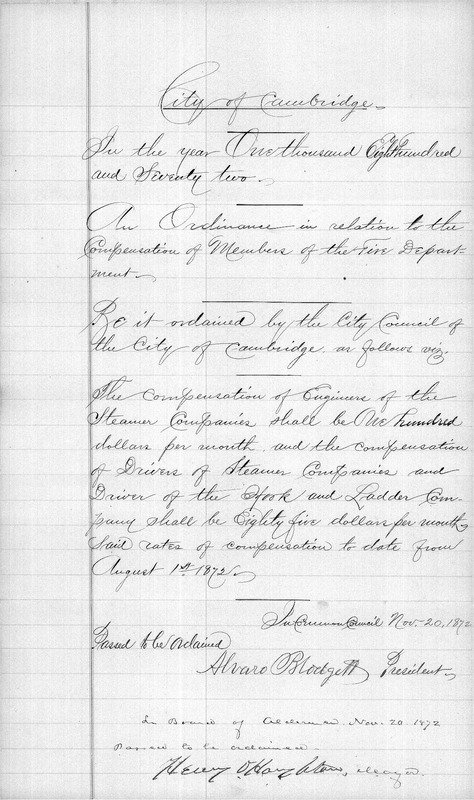 City of Cambridge.
In the year One thousand Eight hundred
and Seventy two.
An Ordinance in relation to the
Compensation of Members of the Fire Depart-
ment.
Be it ordained by the City Council of
the City of Cambridge. as follows viz.
The compensation of Engineers of the
Steamer Companies shall be One hundred
dollars per month and the compensation
of Drivers of Steamer Companies and
Driver of the Hook and Ladder Com-
pany shall be Eighty five dollars per month.
Said rates of compensation to date from
August 1st 1872.
In Common Council Nov. 20, 1872
Passed to be ordained
Alvaro Blodgett President.
In Board of Aldermen Nov. 20 1872
Passed to be ordained.
Henry O. Houghton, Mayor.